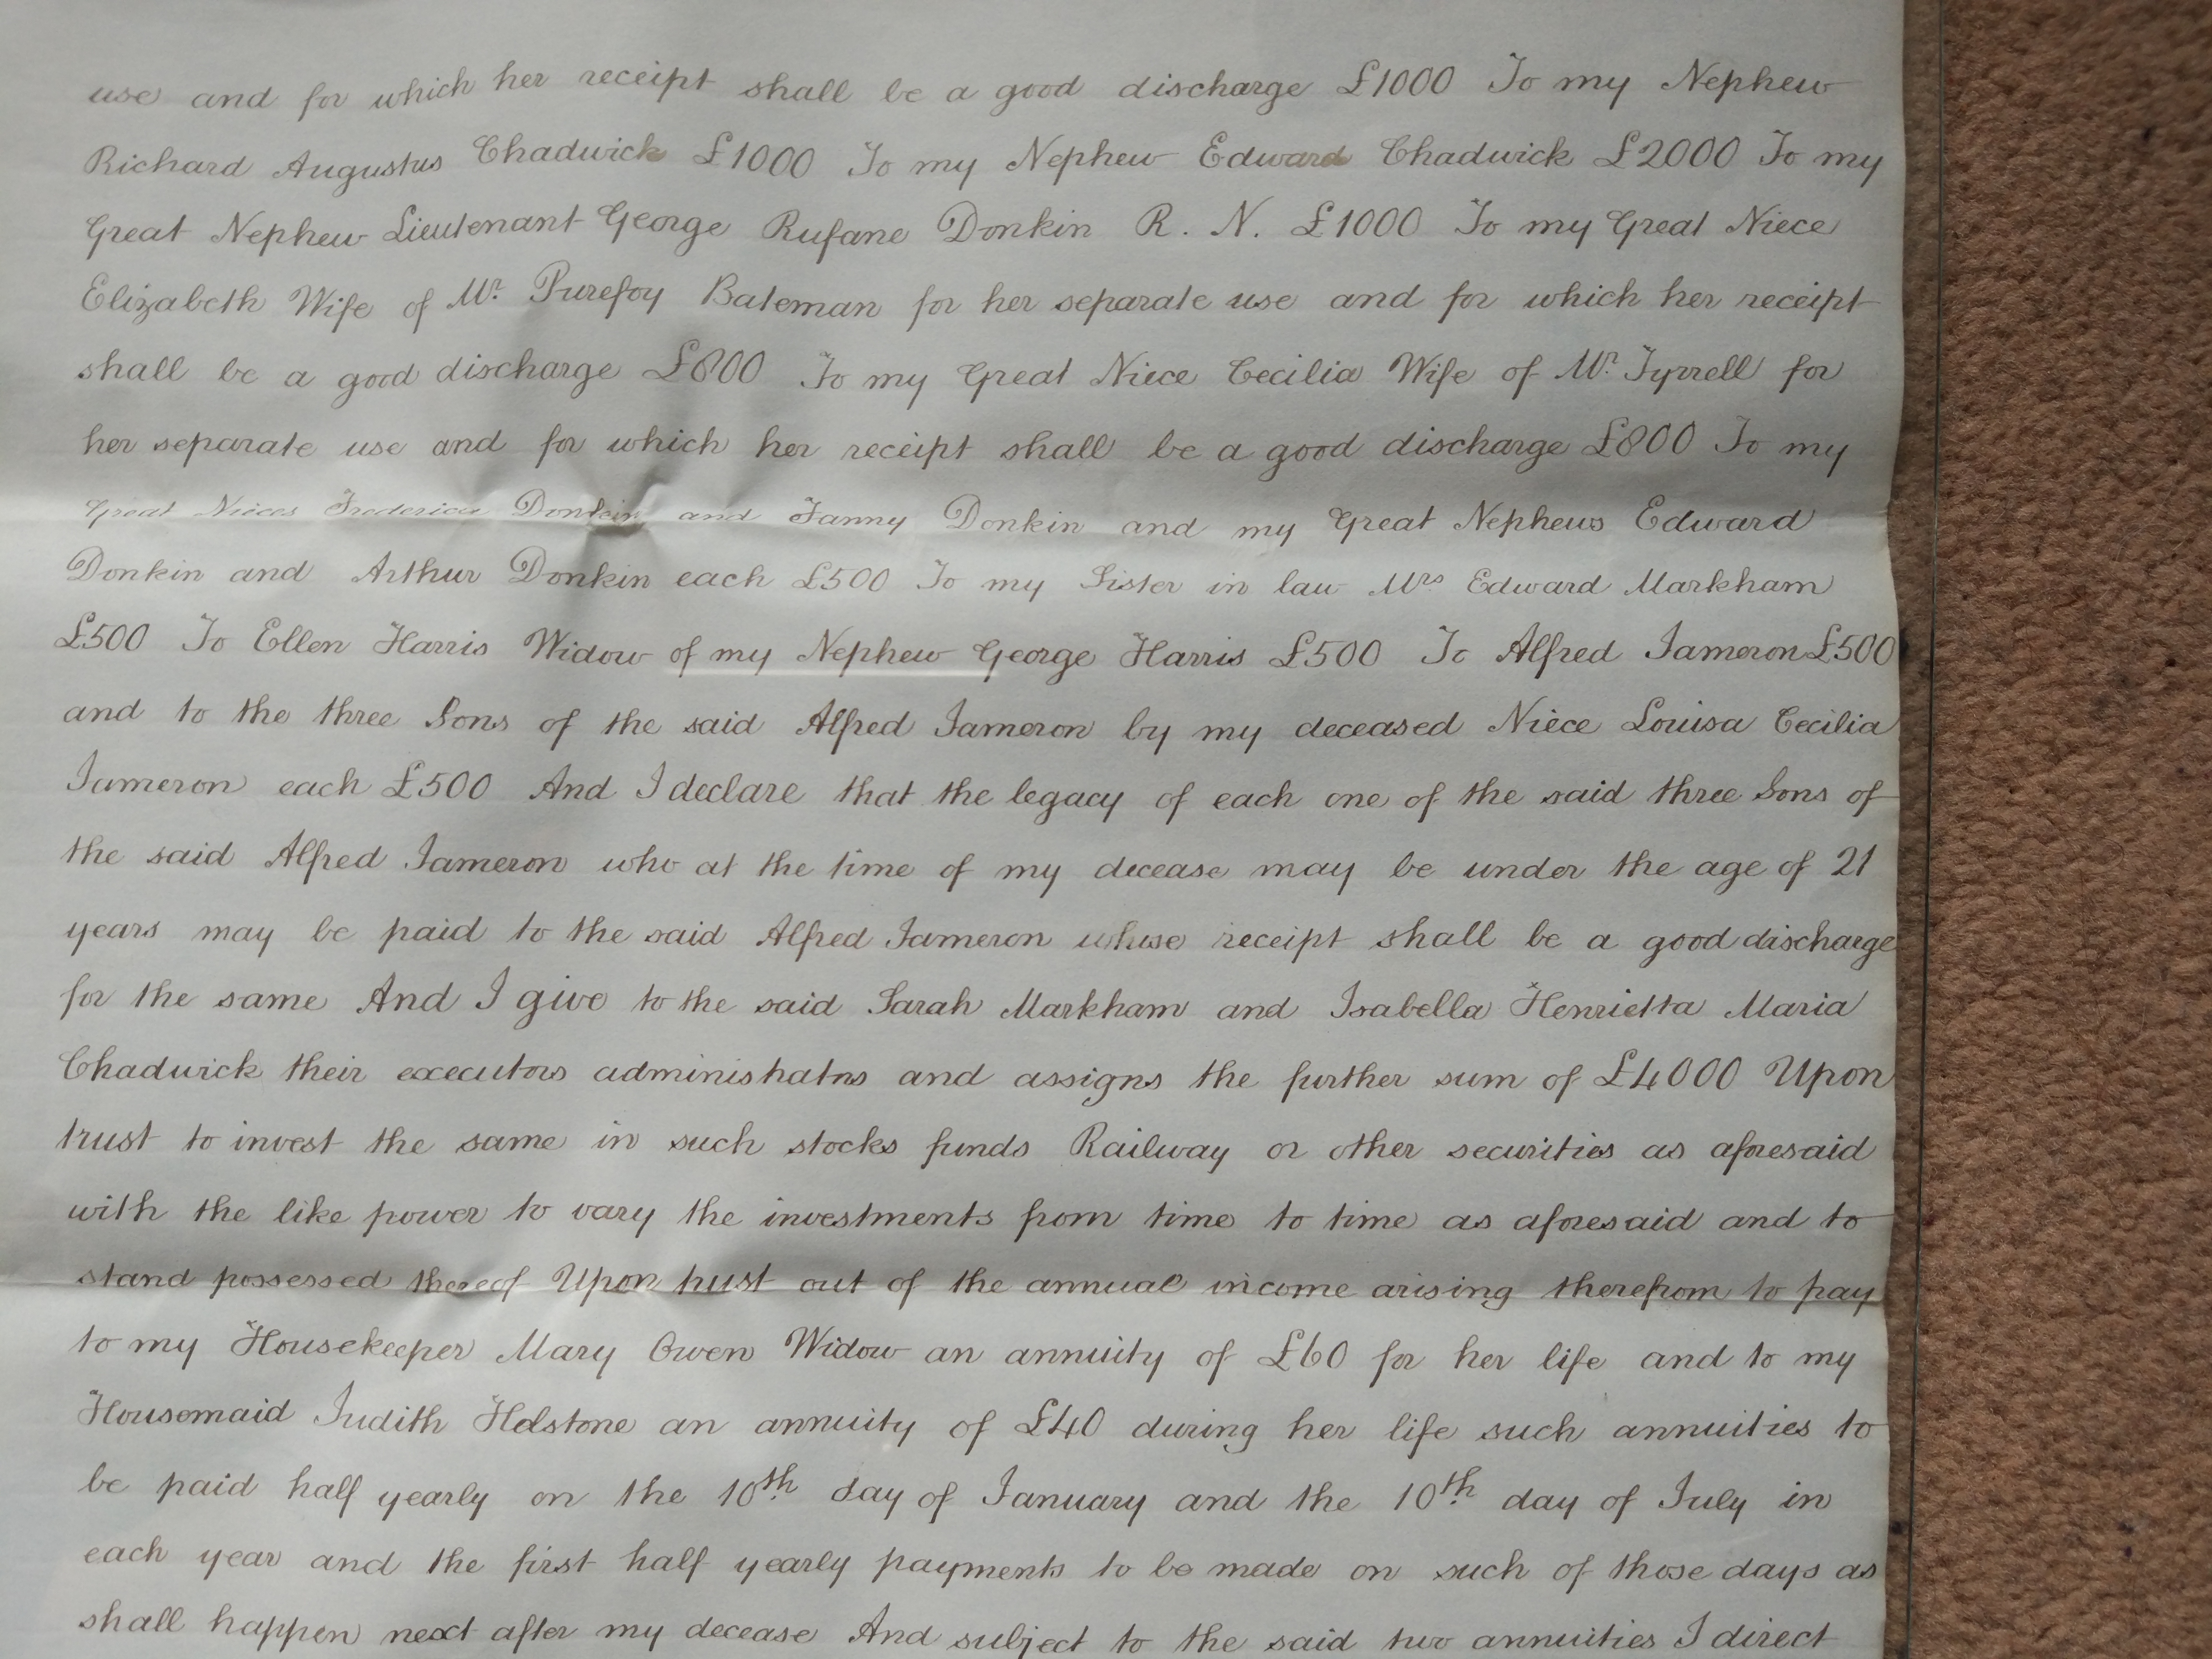 use and for which her receipt shall be a good discharge £1000 To my Nephew
Richard Augustus Chadwick £1000 To my Nephew Edward Chadwick £2000 To my
Great Nephew Lieutenant George Rufane Donkin R. N. £1000 To my Great Niece
Elizabeth Wife of Mr. Purefoy Bateman for her separate use and for which her receipt
shall be a good discharge £800 To my Great Niece Cecilia Wife of Mr. Tyrrell for
her separate use and for which her receipt shall be a good discharge £800 To my
Great Nieces Frederica Donkin and Fanny Donkin and my Great Nephews Edward
Donkin and Arthur Donkin each £500 To my Sister in law Mrs Edward Markham
£500 To Ellen Harris Widow of my Nephew George Harris £500 To Alfred Jameron £500
and to the three Sons of the said Alfred Jameron by my deceased Niece Louisa Cecilia
Jameron each £500 And I declare that the legacy of each one of the said three Sons of
the said Alfred Jameron who at the time of my decease may be under the age of 21
years may be paid to the said Alfred Jameron whose receipt shall be a good discharge
for the same And I give to the said Sarah Markham and Isabella Henrietta Maria
Chadwick their executors administrators and assigns the further sum of £4000 Upon
trust to invest the same in such stocks funds Railway or other securities as aforesaid
with the like power to vary the investments from time to time as aforesaid and to
stand possessed thereof Upon trust out of the annual income arising therefrom to pay
to my Housekeeper Mary Owen Widow an annuity of £60 for her life and to my
Housemaid Judith Helstone an annuity of £40 during her life such annuities to
be paid half yearly on the 10th day of January and the 10th day of July in
each year and the first half yearly payments to be made on such of those days as
shall happen next after my decease And subject to the said two annuities I direct